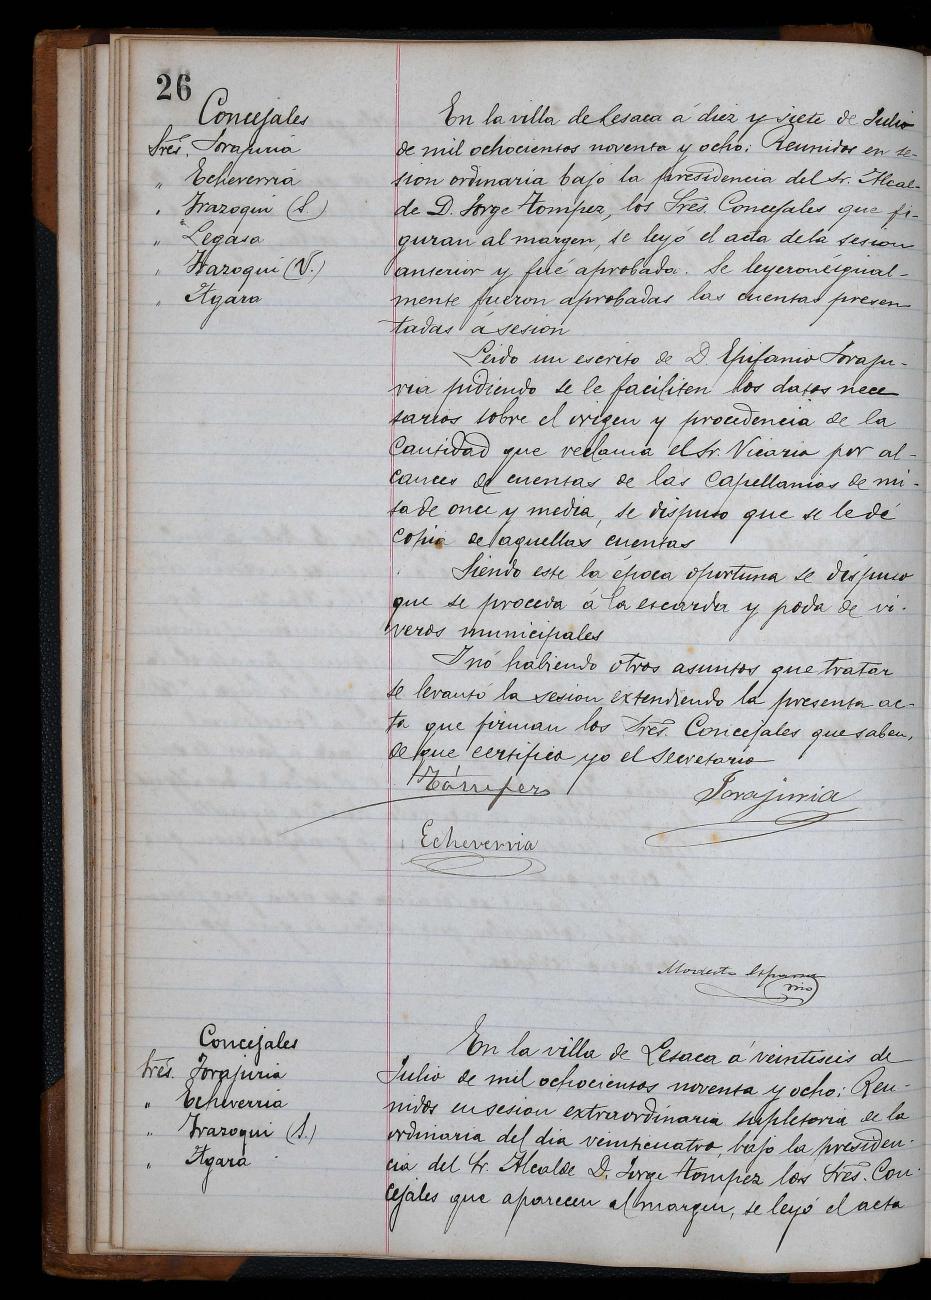 26
Concejales
Sres. Iorajuria
" Echeverria
" Irazoqui (S.)
" Legasa
" Irazoqui (V.)
" Igara
En la villa de Lesaca á diez y siete de Julio
de mil ochocientos noventa y ocho: Reunidos en se-
sion ordinaria bajo la presidencia del Sr. Alcal-
de D. Jorge Tompez, los Sres. Concejales que fi-
guran al margen, se leyó el acta de la sesion
anterior y fué aprobada. Se leyeron é igual-
mente fueron aprobadas las cuentas presen
tadas á sesion
Leido un escrito de D. Epifanio Ioraju-
ria pidiendo se le faciliten los datos nece
sarios sobre el origen y procedencia de la
Cantidad que reclama el Sr. Vicario por al-
cances de cuentas de las Capellanias de mi-
sa de once y media, se dispuso que se le dé
copia de aquellas cuentas
Siendo este la época oportuna se dispuso
que se proceda á la escarda y poda de vi-
veros municipales
I nó habiendo otros asuntos que tratar
se levantó la sesion extendiendo la presenta ac-
ta que firman los Sres. Concejales que saben,
de que certifico yo el Secretario
Tómpez
Iorajuria
Echeverria
Modesto
Concejales
Sres. Iorajuria
" Echeverria
" Irazoqui (S.)
" Igara
En la villa de Lesaca á veintiseis de
Julio de mil ochocientos noventa y ocho: Reu-
nidos en sesion extraordinaria supletoria de la
ordinaria del dia veinticuatro, bajo la presiden-
cia del Sr. Alcalde D. Jorge Tompez los Sres. Con-
cejales que aparecen al margen, se leyó el acta